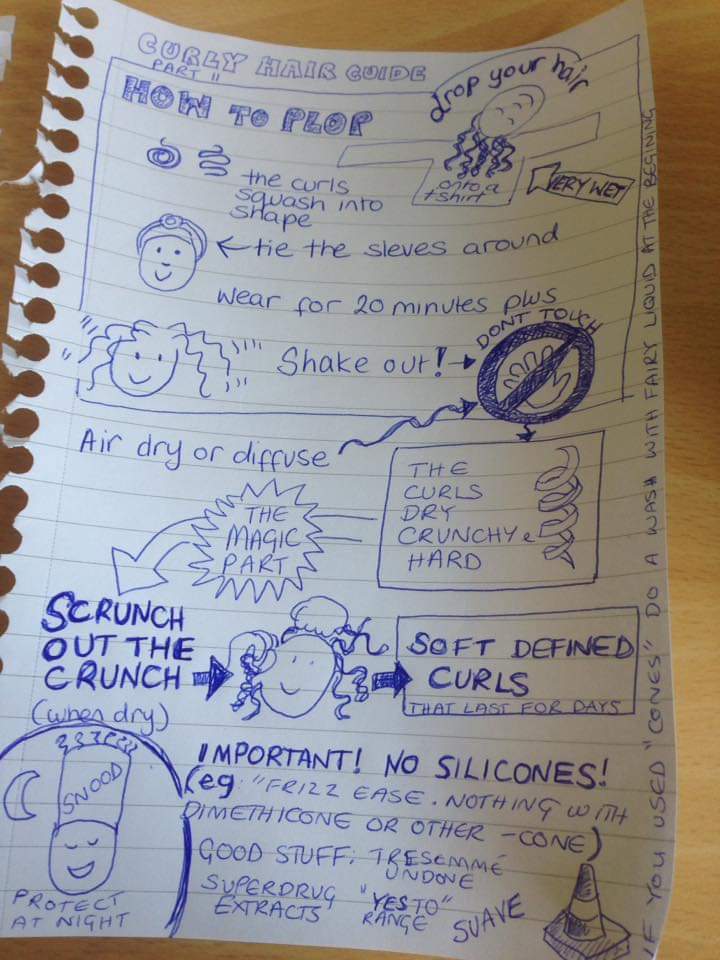 CURLY HAIR GUIDE
PART 11
HOW TO PLOP
drop your hair
onto a
tshirt
VERY WET
the curls
squash into
shape
tie the sleves around
Wear for 20 minutes plus
Shake out!
DONT TOUCH
Air dry or diffuse
THE
CURLS
DRY
CRUNCHY &
HARD
THE
MAGIC
PART
SCRUNCH
OUT THE
CRUNCH
(when dry)
SOFT DEFINED
CURLS
THAT LAST FOR DAYS
SNOOD
PROTECT
AT NIGHT
IMPORTANT! NO SILICONES!
(eg: "FRIZZ EASE. NOTHING WITH
DIMETHICONE OR OTHER -CONE)
GOOD STUFF: TRESEMMÉ
UNDONE
SUPERDRUG
EXTRACTS
"YES TO"
RANGE
SUAVE
IF YOU USED "CONES" DO A WASH WITH FAIRY LIQUID AT THE BEGINING